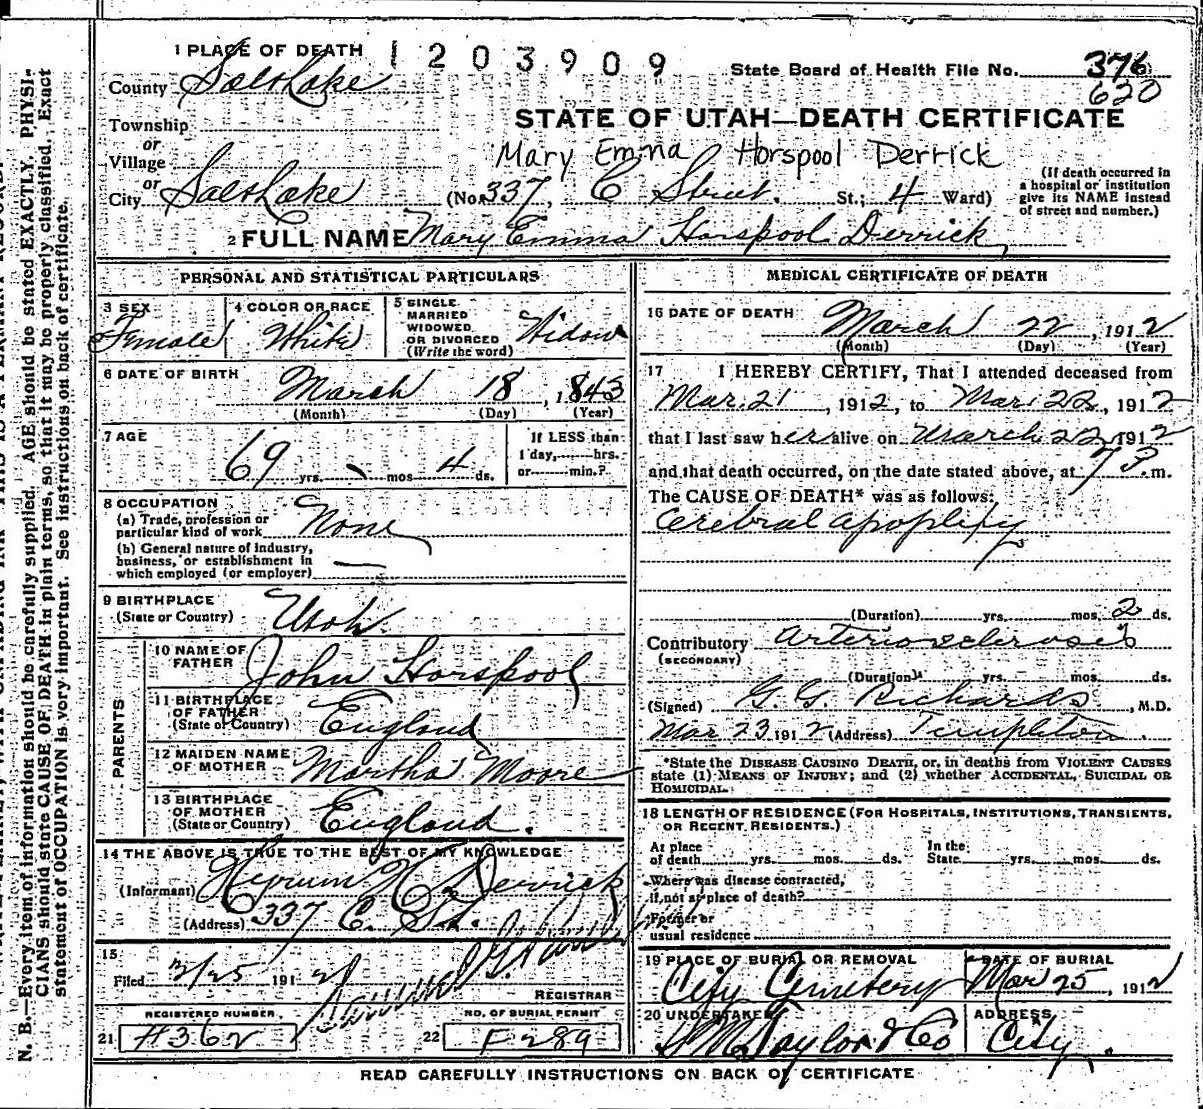 N. B.—Every item of information should be carefully supplied. AGE should be stated EXACTLY. PHYSI-
CIANS should state CAUSE OF DEATH in plain terms, so that it may be properly classified. Exact
statement of OCCUPATION is very important. See instructions on back of certificate.
1 PLACE OF DEATH 1203909
State Board of Health File No. 376
620
County Salt Lake
STATE OF UTAH—DEATH CERTIFICATE
Township
or
Village
Mary Emma Horspool Derrick
or
City Salt Lake (No. 337, C Street. St.; 4 Ward)
(If death occurred in
a hospital or institution
give its NAME instead
of street and number.)
2 FULL NAME Mary Emma Horspool Derrick
PERSONAL AND STATISTICAL PARTICULARS
3 SEX Female
4 COLOR OR RACE White
5 SINGLE
MARRIED
WIDOWED
OR DIVORCED
(Write the word) Widow
6 DATE OF BIRTH March 18, 1843
(Month) (Day) (Year)
7 AGE 69 yrs. mos 4 ds.
If LESS than
1 day, hrs.
or min.?
8 OCCUPATION
(a) Trade, profession or
particular kind of work None
(b) General nature of industry,
business, or establishment in
which employed (or employer) —
9 BIRTHPLACE
(State or Country) Utah
PARENTS
10 NAME OF
FATHER John Horspool
11 BIRTHPLACE
OF FATHER
(State or Country) England
12 MAIDEN NAME
OF MOTHER Martha Moore
13 BIRTHPLACE
OF MOTHER
(State or Country) England.
14 THE ABOVE IS TRUE TO THE BEST OF MY KNOWLEDGE
(Informant) Hyrum H. Derrick
(Address) 337 C. St.
15
Filed 3/25 1912
REGISTRAR
REGISTERED NUMBER,
21 H362
NO. OF BURIAL PERMIT
22 F289
MEDICAL CERTIFICATE OF DEATH
16 DATE OF DEATH March 22, 1912
(Month) (Day) (Year)
17 I HEREBY CERTIFY, That I attended deceased from
Mar. 21, 1912, to Mar. 22, 1912
that I last saw her alive on March 22, 1912
and that death occurred, on the date stated above, at m.
The CAUSE OF DEATH* was as follows:
Cerebral apoplexy
(Duration) yrs. mos. 2 ds.
Contributory Arteriosclerosis
(SECONDARY)
(Duration) yrs. mos. ds.
(Signed) G. G. Richards, M.D.
Mar 23 1912 (Address) Templeton.
*State the DISEASE CAUSING DEATH, or, in deaths from VIOLENT CAUSES
state (1) MEANS OF INJURY; and (2) whether ACCIDENTAL, SUICIDAL OR
HOMICIDAL.
18 LENGTH OF RESIDENCE (FOR HOSPITALS, INSTITUTIONS, TRANSIENTS,
OR RECENT RESIDENTS.)
At place
of death yrs. mos. ds.
In the
State yrs. mos ds.
Where was disease contracted,
if not at place of death?
Former or
usual residence
19 PLACE OF BURIAL OR REMOVAL
City Cemetery
DATE OF BURIAL
Mar 25, 1912
20 UNDERTAKER
S M Taylor & Co
ADDRESS
City.
READ CAREFULLY INSTRUCTIONS ON BACK OF CERTIFICATE